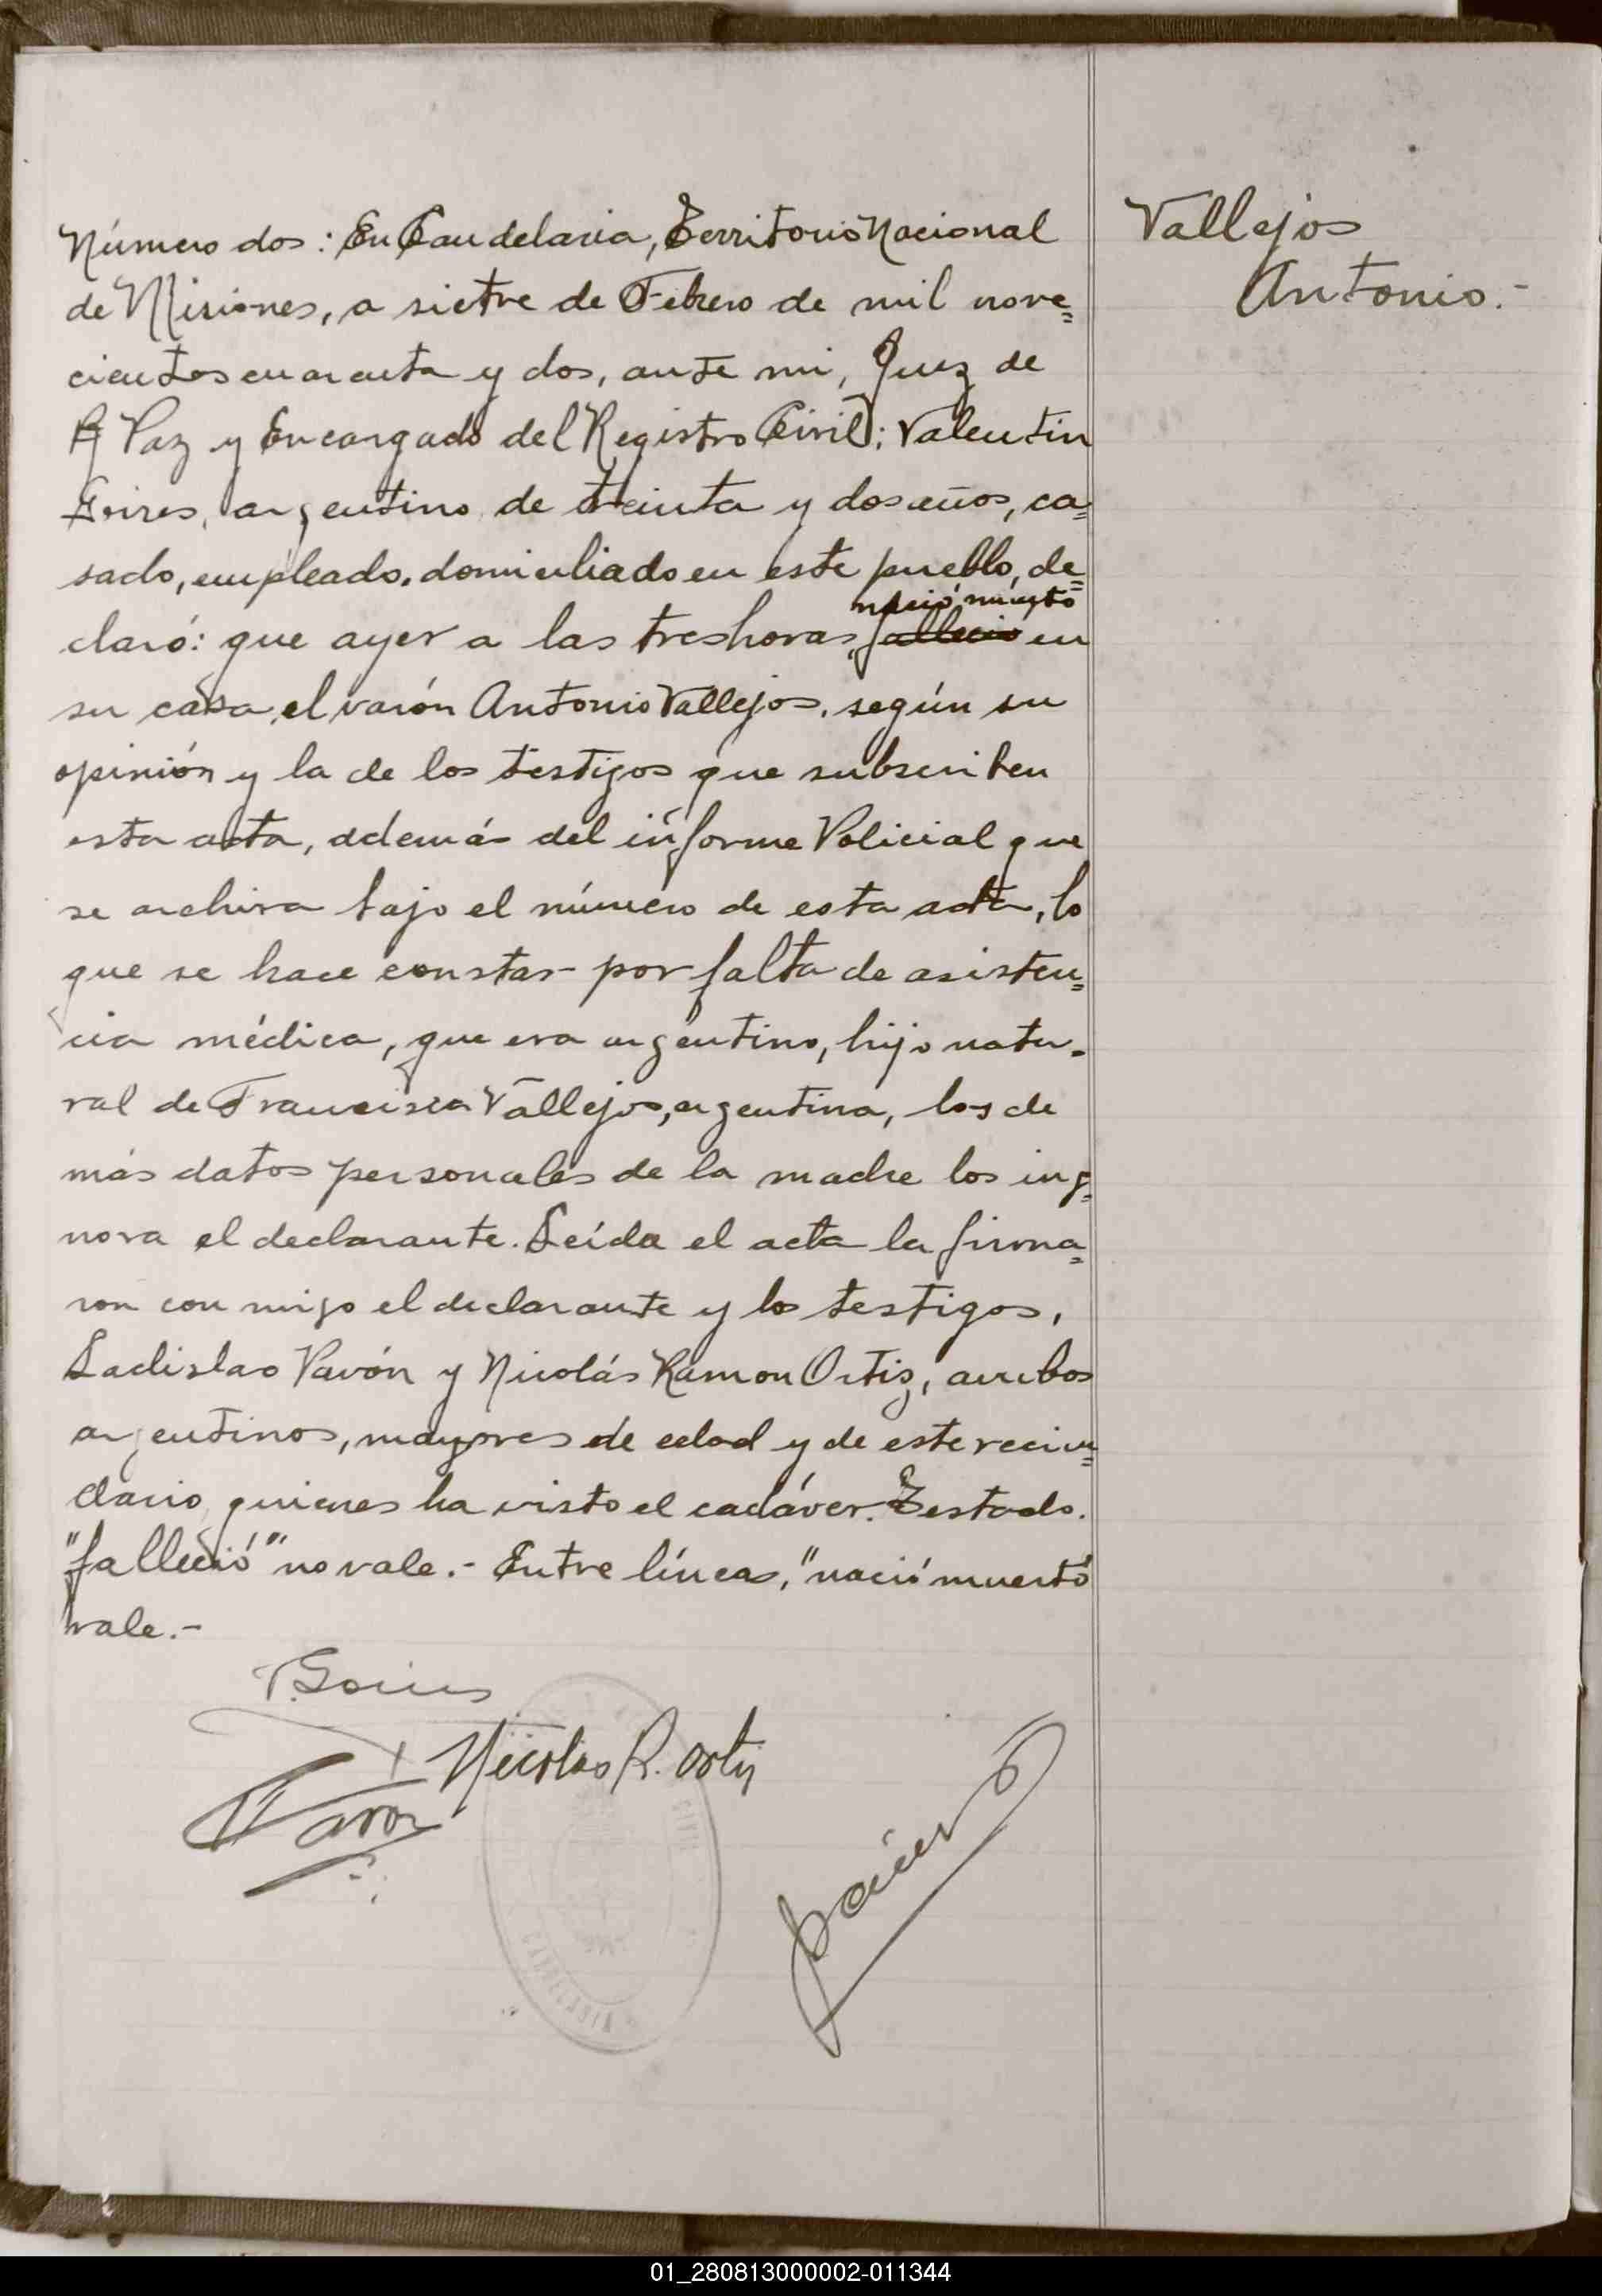 Número dos: En Candelaria, Territorio Nacional
de Misiones, a sietre de Febrero de mil nove=
cientos cuarenta y dos, ante mi, Juez de
Paz y Encargado del Registro Civil; Valentin
Goires, argentino de treinta y dos años, ca=
sado, empleado, domiciliado en este pueblo, de=
nació muerto
claró: que ayer a las tres horas, falleció en
su casa, el varón Antonio Vallejos, según su
opinión y la de los testigos que subscriben
esta acta, además del informe Policial que
se archiva bajo el número de esta acta, lo
que se hace constar por falta de asisten=
cia médica, que era argentino, hijo natu-
ral de Francisca Vallejos, argentina, los de
más datos personales de la madre los ing=
nora el declarante. Leída el acta la firma=
ron con migo el declarante y los testigos,
Ladislao Pavón y Nicolás Ramon Ortiz, ambos
argentinos, mayores de edad y de este recin=
dario, quienes ha visto el cadáver. Testado.
"falleció" no vale.- Entre líneas, "nació muerto
vale.-
Vallejos
Antonio.-
Nicolas R. Ortiz
Pavon
CIVIL
CANDELARIA
01_280813000002-011344